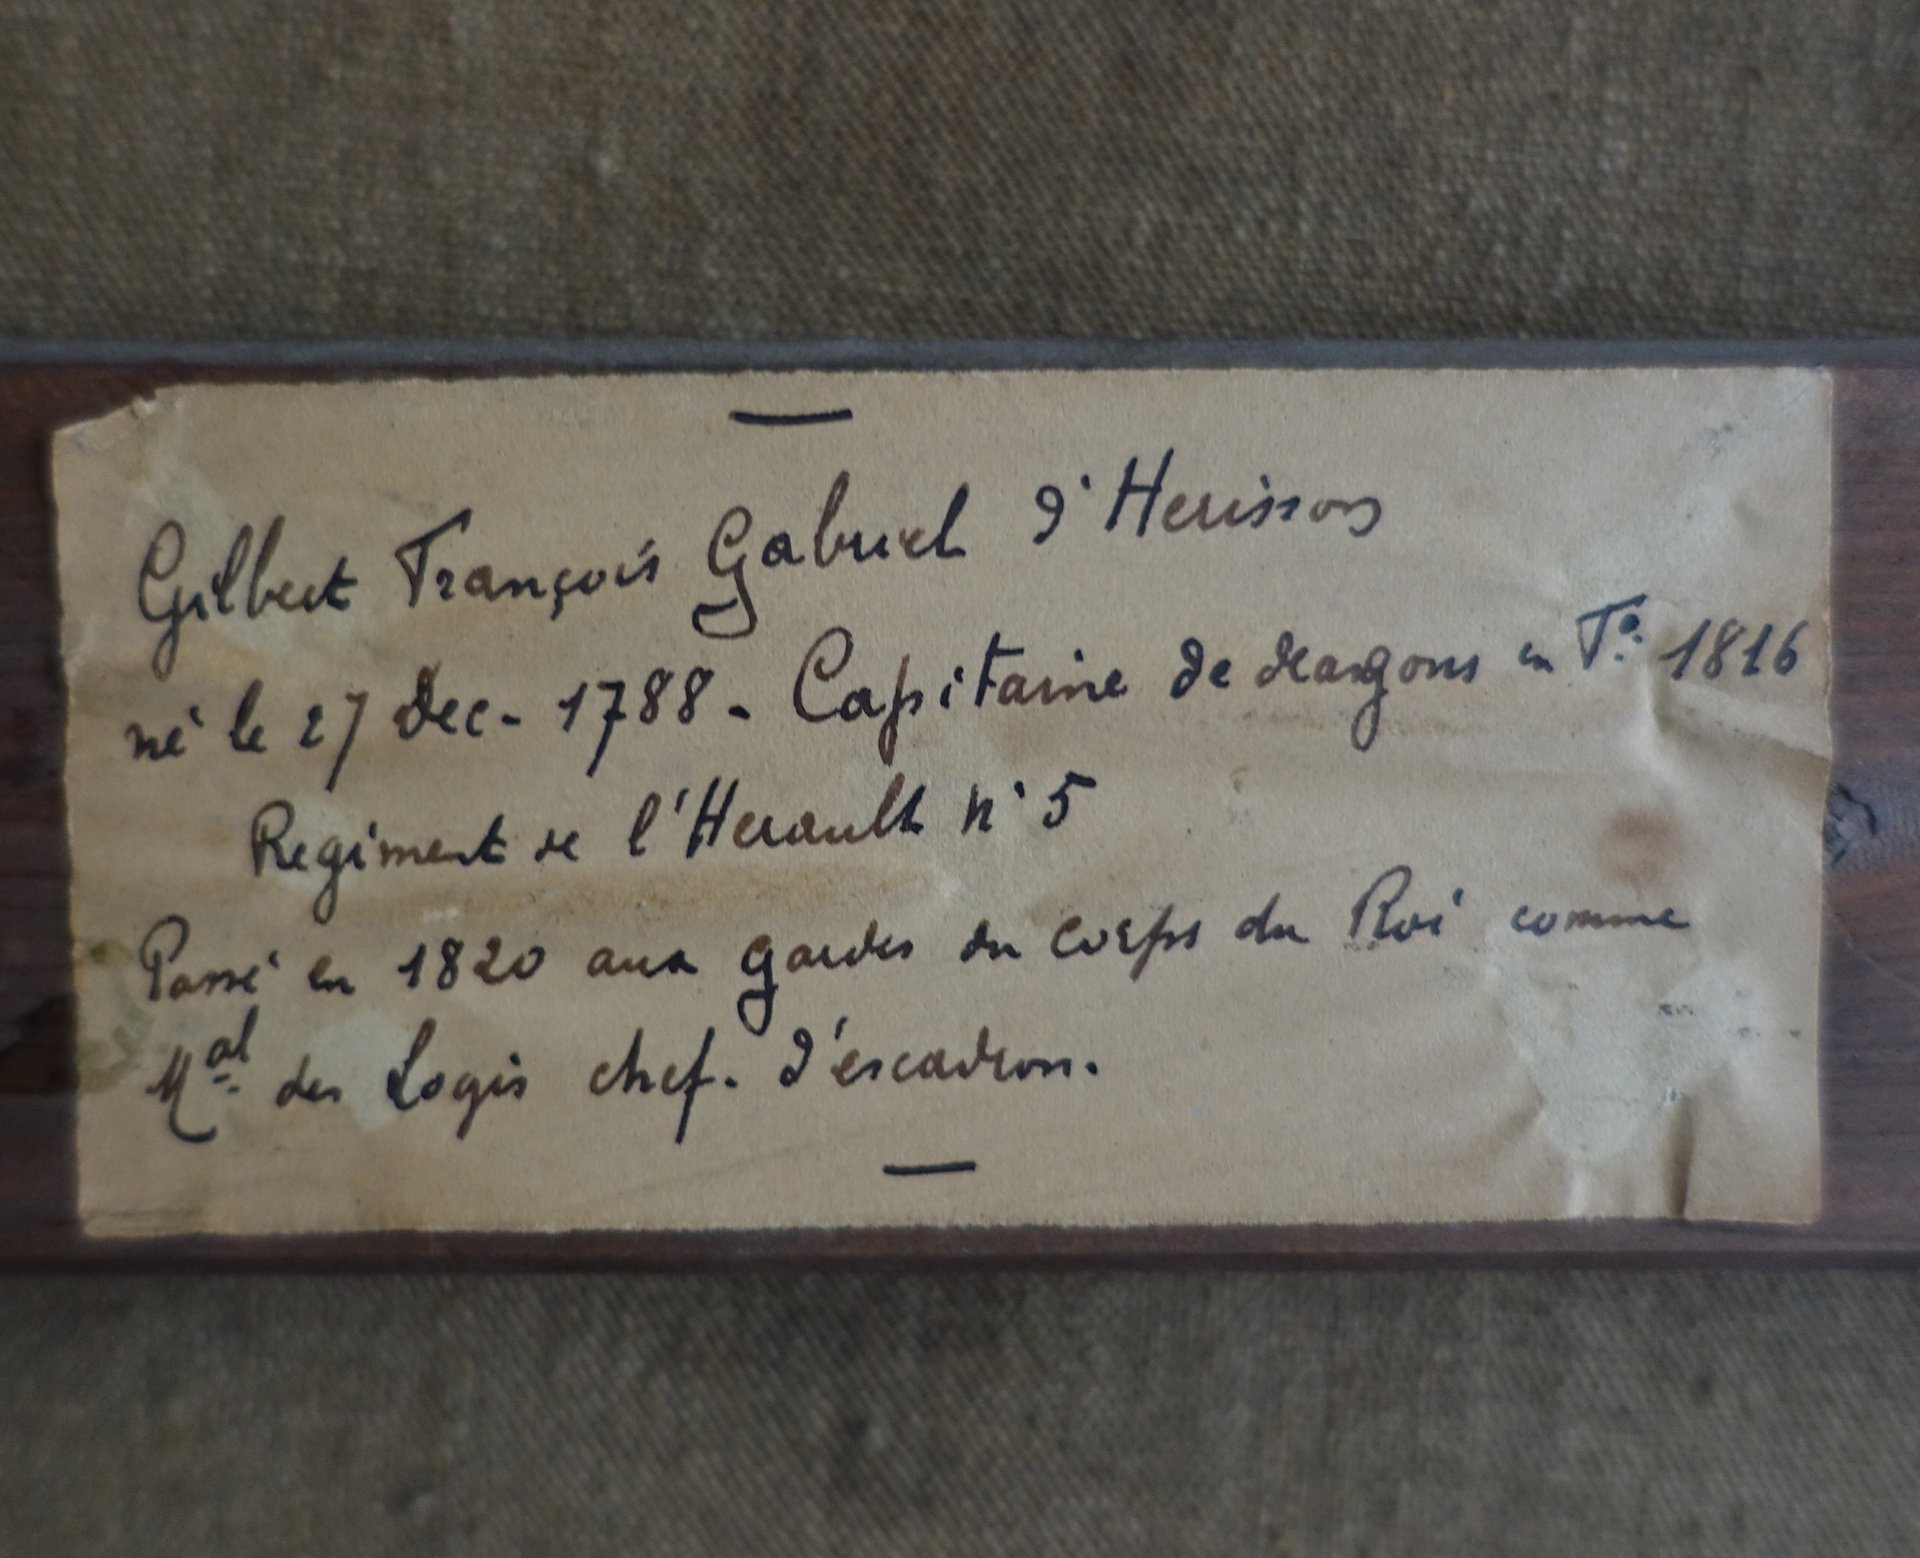 Gilbert François Gabriel d'Herisson
né le 27 Dec - 1788 - Capitaine de dragons en 1816
Regiment de l'Herault n° 5
Passé en 1820 aux gardes du corps du Roi comme
Mal des Logis chef. d'escadron.